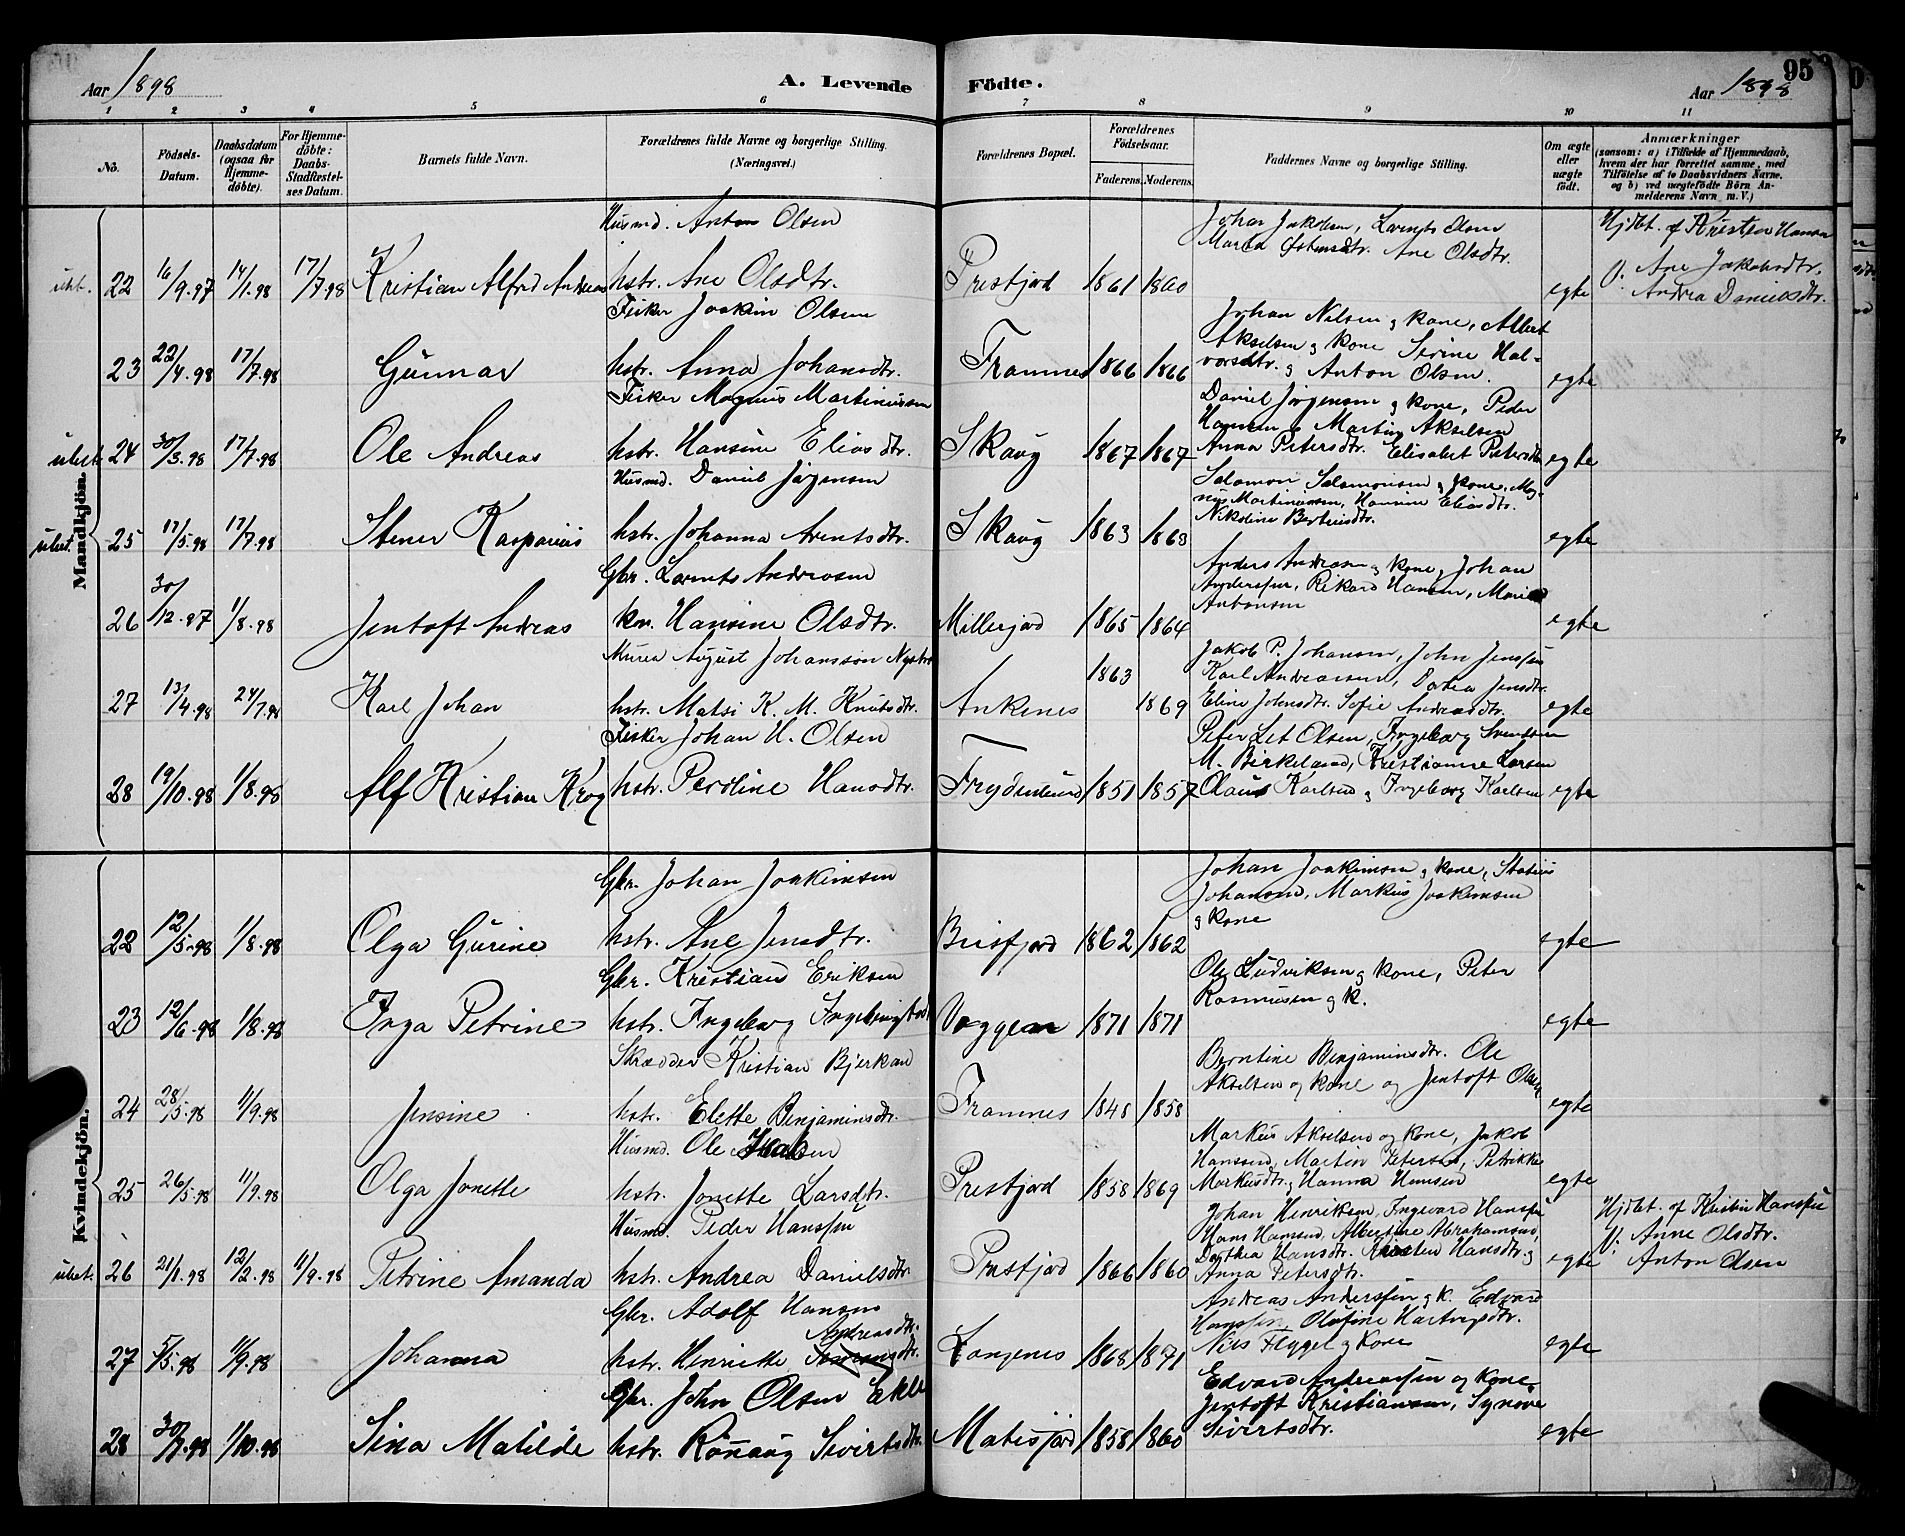 Aar 1898
A. Levende Födte.
95
Aar 1898
1 2 3 4 5 6 7 8 9 10 11
No.
Födsels-Datum.
Daabsdatum (ogsaa for Hjemmedöbte).
For Hjemmedöbte: Daabs-Stadfæstelses Datum.
Barnets fulde Navn.
Forældrenes fulde Navne og borgerlige Stilling. (Næringsvei.)
Forældrenes Bopæl.
Forældrenes Födselsaar.
Faderens. Moderens.
Faddernes Navne og borgerlige Stilling.
Om ægte eller uægte födt.
Anmærkninger
(saasom: a) i Tilfælde af Hjemmedaab, hvem der har forrettet samme, med Tilföielse af to Daabsvidners Navne. og b) ved uægtefödte Börn Anmelderens Navn m. V.)
Mandkjön.
Husmd. Anton Olsen
Johan Jakobsen, Lorents Olsen
Hjdbt. af Kristen Hansen
Maria Ostensdtr. Ane Olsdtr.
22 16/9.97 14/1.98 17/7.98 Kristian Alfred Andreas hstr. Ane Olsdtr. Prestjord 1861 1860 egte
V. Ane Jakobsdtr.
Andrea Danielsdtr.
Fisker Joakim Olsen
Johan Nilsen og kone, Albert
Akselsen og kone Serine Hal-
23 22/4.98 17/7.98 Gunnar hstr. Anna Johansdtr. Framnes 1866 1866 vorsdtr. og Anton Olsen. egte
Fisker Magnus Martinussen
Daniel Jørgensen og kone, Peder
Hansen og Martin Akselsen
ubet. 24 30/3.98 17/7.98 Ole Andreas hstr. Hansine Eliasdtr. Skaug 1867 1867 Anna Petersdtr. Elisabet Petersdtr egte
Husmd. Daniel Jørgensen
Salamon Salamonsen og kone, Mag-
nus Martinussen, Hansine Eliasdtr.
ubet. 25 17/5.98 17/7.98 Stener Kasparius hstr. Johanna Arentsdtr. Skaug 1863 1863 Nikoline Berteusdtr. egte
Gbr. Lorents Andreasen
Anders Andreasen og kone, Johan
Anderssen, Rikard Hansen,
Antonsen
26 30/12.97 1/8.98 Jentoft Andreas kon. Hansine Olsdtr. Millerjord 1865 1864 egte
Murer August Johansson
Jakob P. Johansen, John Jenssen
Karl Andreassen, Dortea Jensdtr.
27 13/4.98 24/7.98 Karl Johan hstr. Matsi K. M. Knutsdtr. Ankenes 1863 1869 Eline Johnsdtr. Sofie Andreasdtr. egte
Fisker Johan H. Olsen
Peter Olsen, Ingeborg Svendsen
M. Birkeland, Kristianne Larsen
28 19/10.98 1/8.98 Alf Kristian Krog hstr. Peroline Hansdtr. Frydenlund 1851 1857 Olaus Karlsen og Ingeborg Karlsen egte
Kvindekjön.
Gbr. Johan Joakimsen
Johan Joakimsen og kone,
Johansen, Markus Joakimsen
og kone
22 12/5.98 1/8.98 Olga Gurine hstr. Ane Jensdtr. Beisfjord 1862 1862 egte
Gbr. Kristian Eriksen
Ole Ludviksen og kone, Peter
Rasmusen og k.
23 12/6.98 1/8.98 Inga Petrine hstr. Ingeborg Ingebrigtsdtr Vaggeen 1871 1871 egte
Skrædder Kristian Bjerkan
Berntine Benjaminsdtr. Ole
Akselsen og kone og Jentoft Olsen
24 28/5.98 11/9.98 Jensine hstr. Elette Benjaminsdtr. Framnes 1848 1858 egte
Husmd. Ole
Markus Akselsen og kone, Jakob
Hanssen, Martin Petersen, Petrikke
25 26/5.98 11/9.98 Olga Jonette hstr. Jonette Larsdtr. Prestjord 1858 1869 Markusdtr. og Hanna Hansen egte
Husmd. Peder Hanssen
Johan Henriksen, Ingevard Hanssen
Hjdbt. af Kristen Hanssen
Hans Hanssen, Albertine Abrahamsen,
V. Anne Olsdtr.
Dorthea Hansdtr. Kristen Hansdtr. og
ubet. 26 21/1.98 12/2.98 11/9.98 Petrine Amanda hstr. Andrea Danielsdtr. Prestjord 1866 1860 Anna Petersdtr. egte Anton Olsen
Gbr. Adolf Hansen
Andreas Anderssen og k. Edvard
Hanssen, Olufine Hartvigsdtr.
Andreasdtr.
27 5/5.98 11/9.98 Johanna hstr. Henriette Langenes 1868 1871 Nils Flygel og kone egte
Gbr. John Olsen
Edvard Andreassen og kone
Jentoft Kristiansen, Synøve
28 30/7.98 1/10.98 Sina Matilde hstr. Rønnaug Sivertsdtr. Matisjord 1858 1860 Sivertsdtr. egte